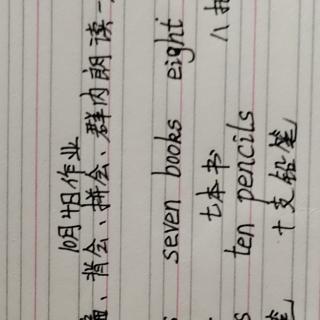 10月4日作业
背会、拼会、群内朗读一
seven books eight
七本书 八
ten pencils
十支铅笔